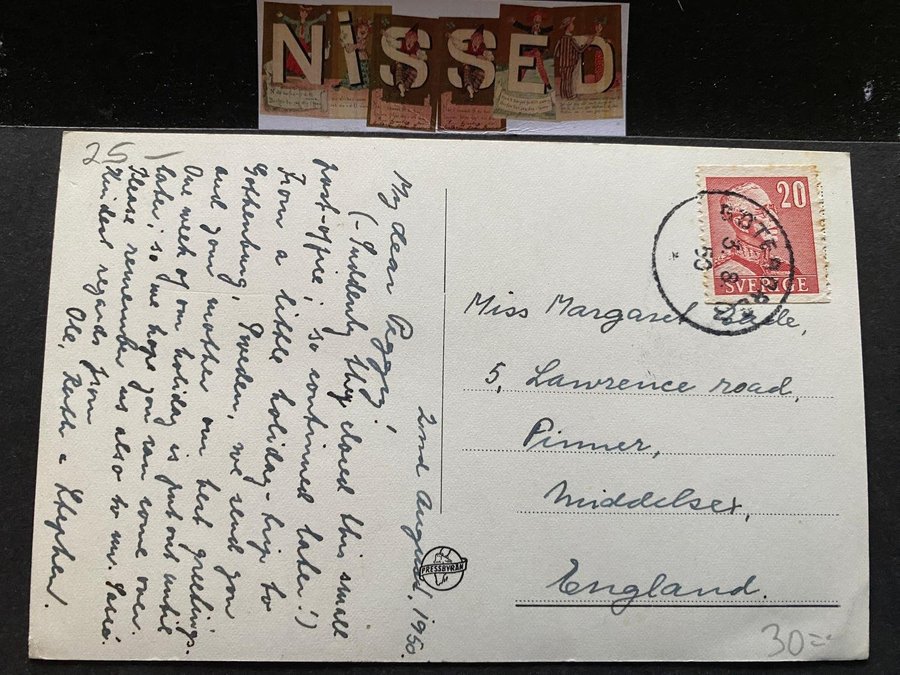 NiSSED
25
2nd August, 1950.
My dear Peggy!
(-Suddenly they closed this small
post-office; so continued later!)
From a little holiday-trip to
Gothenburg, Sweden, we send you
and your mother our best greetings.
One week of our holiday is put out until
later; so we hope you can come over.
Please remember us also to mr.
Kindest regards from
Ole, Ruth & Stephen.
20
SVERIGE
3. 8. 50
Miss Margaret
5, Lawrence road,
Pinner,
Middelsex,
England.
PRESSBYRÅN
30=